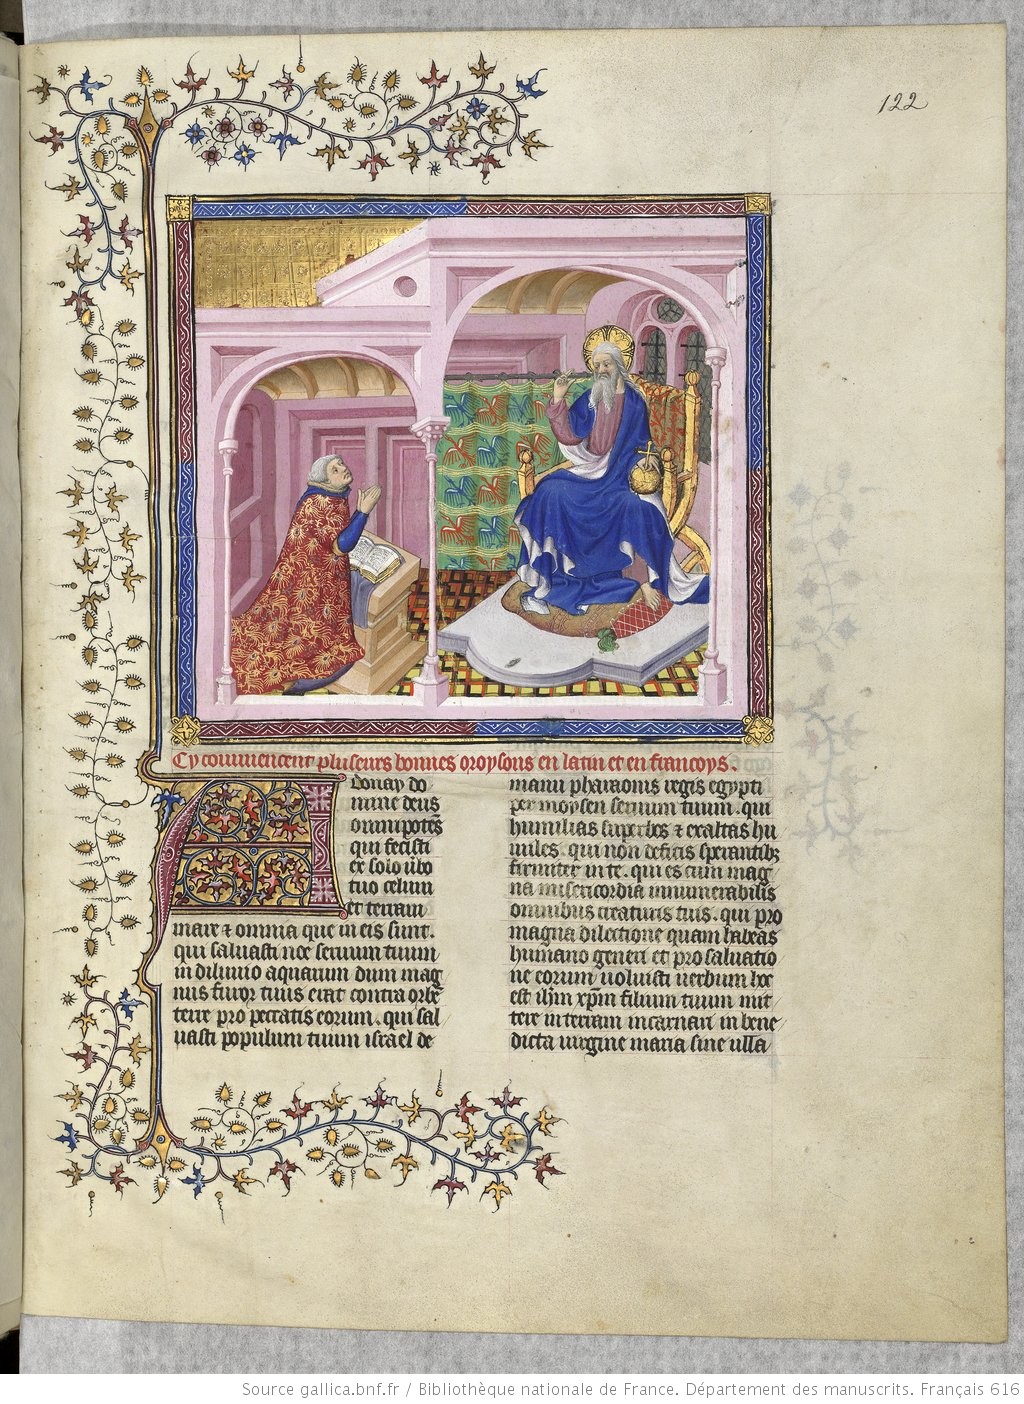 122
Cy commencent pluseurs bonnes oroysons en latin et en francoys.
Adonay do
mine deus
omnipotẽs
qui fecisti
ex solo ũbo
tuo celum
et terram
mare ⁊ omnia que in eis sunt.
qui saluasti noe seruum tuum
in diluuio aquarum dum mag
nus furor tuus erat contra orbẽ
terre pro peccatis eorum. qui sal
uasti populum tuum israel de
manu pharaonis regis egypti
per moysen seruum tuum. qui
humilias superbos ⁊ exaltas hu
miles. qui non deficis sperantibꝫ
firmiter in te. qui es cum mag
na misericordia innumerabilis
omnibus creaturis tuis. qui pro
magna dilectione quam habeas
humano generi et pro saluatio
ne eorum uoluisti uerbum hoc
est ihm xpm filium tuum mit
tere in terram incarnari in bene
dicta uirgine maria sine ulla
Source gallica.bnf.fr / Bibliothèque nationale de France. Département des manuscrits. Français 616